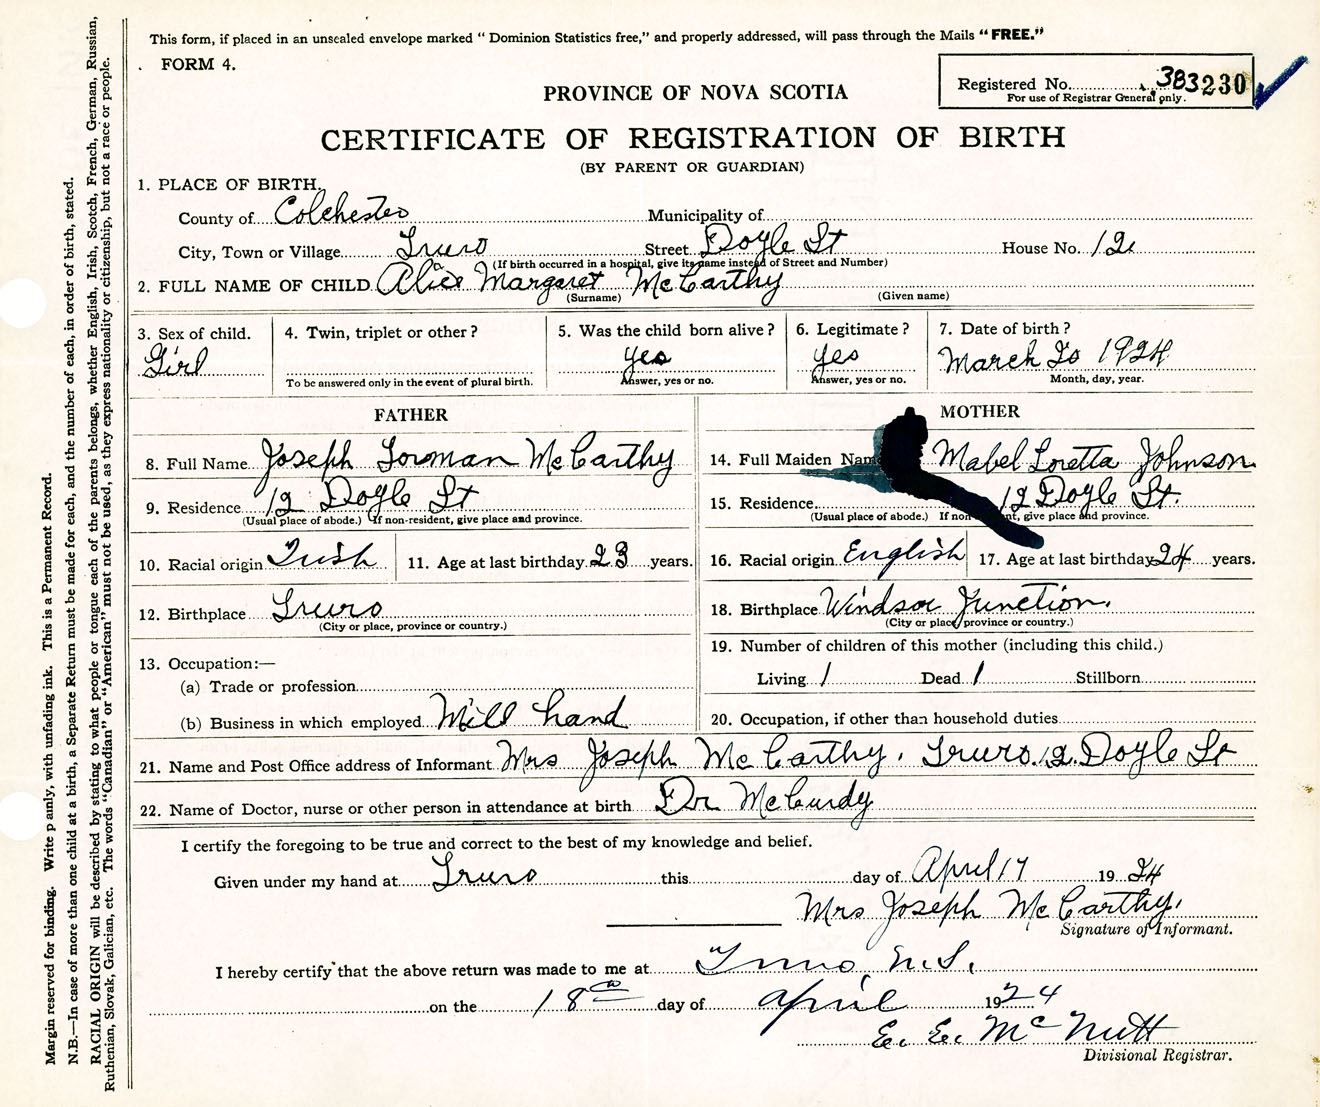 This form, if placed in an unsealed envelope marked " Dominion Statistics free," and properly addressed, will pass through the Mails "FREE."
FORM 4.
Registered No. 383230
For use of Registrar General only.
PROVINCE OF NOVA SCOTIA
CERTIFICATE OF REGISTRATION OF BIRTH
(BY PARENT OR GUARDIAN)
1. PLACE OF BIRTH.
County of Colchester Municipality of
City, Town or Village Truro Street Doyle St House No. 12
(If birth occurred in a hospital, give its name instead of Street and Number)
2. FULL NAME OF CHILD Alice Margaret McCarthy
(Surname) (Given name)
3. Sex of child. 4. Twin, triplet or other? 5. Was the child born alive? 6. Legitimate? 7. Date of birth?
Girl yes yes March 20 1924
To be answered only in the event of plural birth. Answer, yes or no. Answer, yes or no. Month, day, year.
FATHER
8. Full Name Joseph Lorman McCarthy
9. Residence 12 Doyle St
(Usual place of abode.) If non-resident, give place and province.
10. Racial origin Irish 11. Age at last birthday 23 years.
12. Birthplace Truro
(City or place, province or country.)
13. Occupation:—
(a) Trade or profession
(b) Business in which employed Mill hand
MOTHER
14. Full Maiden Name Mabel Loretta Johnson
15. Residence 12 Doyle St.
(Usual place of abode.) If non nt, give place and province.
16. Racial origin English 17. Age at last birthday 24 years.
18. Birthplace Windsor Junction.
(City or place, province or country.)
19. Number of children of this mother (including this child.)
Living 1 Dead 1 Stillborn
20. Occupation, if other than household duties
21. Name and Post Office address of Informant Mrs Joseph McCarthy. Truro. 12 Doyle St
22. Name of Doctor, nurse or other person in attendance at birth Dr McCurdy
I certify the foregoing to be true and correct to the best of my knowledge and belief.
Given under my hand at Truro this day of April 17 1924
Mrs Joseph McCarthy.
Signature of Informant.
I hereby certify that the above return was made to me at Truro, N.S.
on the 18th day of April 1924
E. E. McNutt
Divisional Registrar.
Margin reserved for binding. Write p ainly, with unfading ink. This is a Permanent Record.
N.B.—In case of more than one child at a birth, a Separate Return must be made for each, and the number of each, in order of birth, stated.
RACIAL ORIGIN will be described by stating to what people or tongue each of the parents belongs, whether English, Irish, Scotch, French, German, Russian,
Ruthenian, Slovak, Galician, etc. The words "Canadian" or "American" must not be used, as they express nationality or citizenship, but not a race or people.